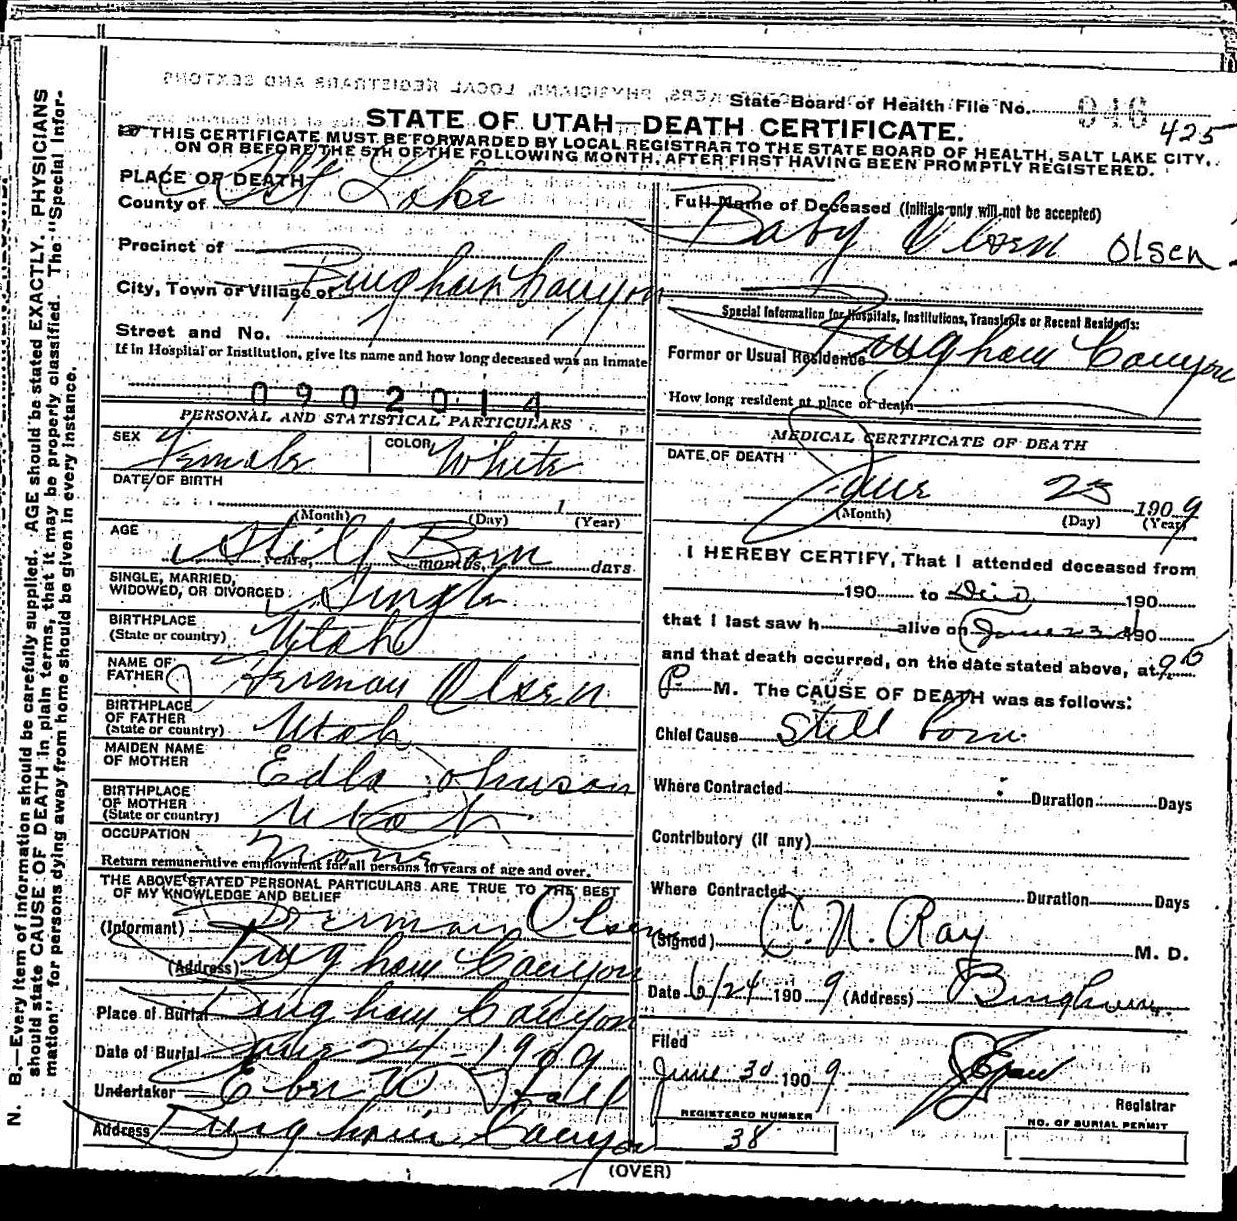 State Board of Health File No. 946
425
STATE OF UTAH—DEATH CERTIFICATE.
THIS CERTIFICATE MUST BE FORWARDED BY LOCAL REGISTRAR TO THE STATE BOARD OF HEALTH, SALT LAKE CITY,
ON OR BEFORE THE 5TH OF THE FOLLOWING MONTH, AFTER FIRST HAVING BEEN PROMPTLY REGISTERED.
PLACE OF DEATH
County of Salt Lake
Precinct of
City, Town or Village of Bingham Canyon
Street and No.
If in Hospital or Institution, give its name and how long deceased was an inmate
0902014
PERSONAL AND STATISTICAL PARTICULARS
SEX Female COLOR White
DATE OF BIRTH
1
(Month) (Day) (Year)
AGE Still Born
years, months, days
SINGLE, MARRIED,
WIDOWED, OR DIVORCED Single
BIRTHPLACE
(State or country) Utah
NAME OF
FATHER Herman Olsen
BIRTHPLACE
OF FATHER
(State or country) Utah
MAIDEN NAME
OF MOTHER Edla Johnson
BIRTHPLACE
OF MOTHER
(State or country) Utah
OCCUPATION None
Return remunerative employment for all persons 10 years of age and over.
THE ABOVE STATED PERSONAL PARTICULARS ARE TRUE TO THE BEST
OF MY KNOWLEDGE AND BELIEF
(Informant) Herman Olsen
(Address) Bingham Canyon
Place of Burial Bingham Canyon
Date of Burial June 24-1909
Undertaker Eber W Hall
Address Bingham Canyon
Full Name of Deceased (Initials only will not be accepted)
Baby Olsen Olsen
Special Information for Hospitals, Institutions, Transients or Recent Residents:
Former or Usual Residence Bingham Canyon
How long resident at place of death
MEDICAL CERTIFICATE OF DEATH
DATE OF DEATH
June 23 1909
(Month) (Day) (Year)
I HEREBY CERTIFY, That I attended deceased from
190 to 190
that I last saw h alive on June 23 190
and that death occurred, on the date stated above, at 9
P. M. The CAUSE OF DEATH was as follows:
Chief Cause Still born
Where Contracted Duration Days
Contributory (if any)
Where Contracted Duration Days
(Signed) C. N. Ray M. D.
Date 6/24 1909 (Address) Bingham
Filed
June 30 1909
Registrar
REGISTERED NUMBER
38
NO. OF BURIAL PERMIT
(OVER)
N. B.—Every item of information should be carefully supplied. AGE should be stated EXACTLY. PHYSICIANS
should state CAUSE OF DEATH in plain terms, that it may be properly classified. The "Special Infor-
mation" for persons dying away from home should be given in every instance.